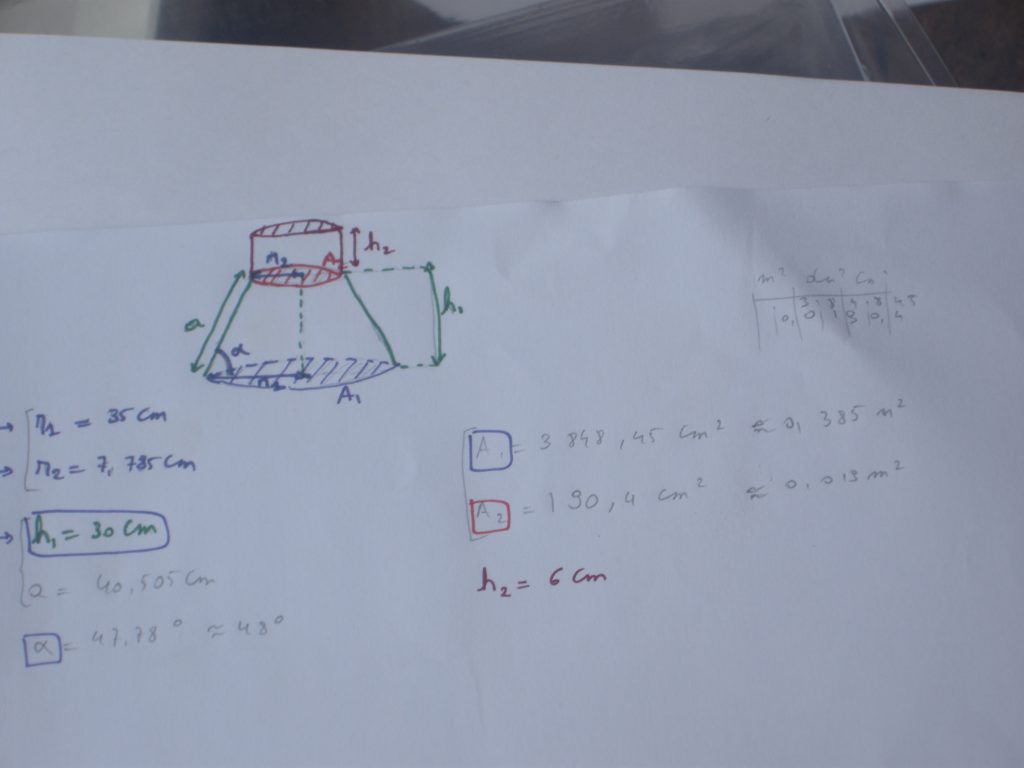 h₂
r₂ A₂
a
h₁
α
r₁
A₁
m² dm² cm²
3 8 4 8, 45
0, 0 1 9 0, 4
→ r₁ = 35 cm
→ r₂ = 7,785 cm
→ h₁ = 30 cm
a = 40,505 cm
α = 47,78° ≈ 48°
A₁ = 3 848,45 cm² ≈ 0,385 m²
A₂ = 190,4 cm² ≈ 0,019 m²
h₂ = 6 cm